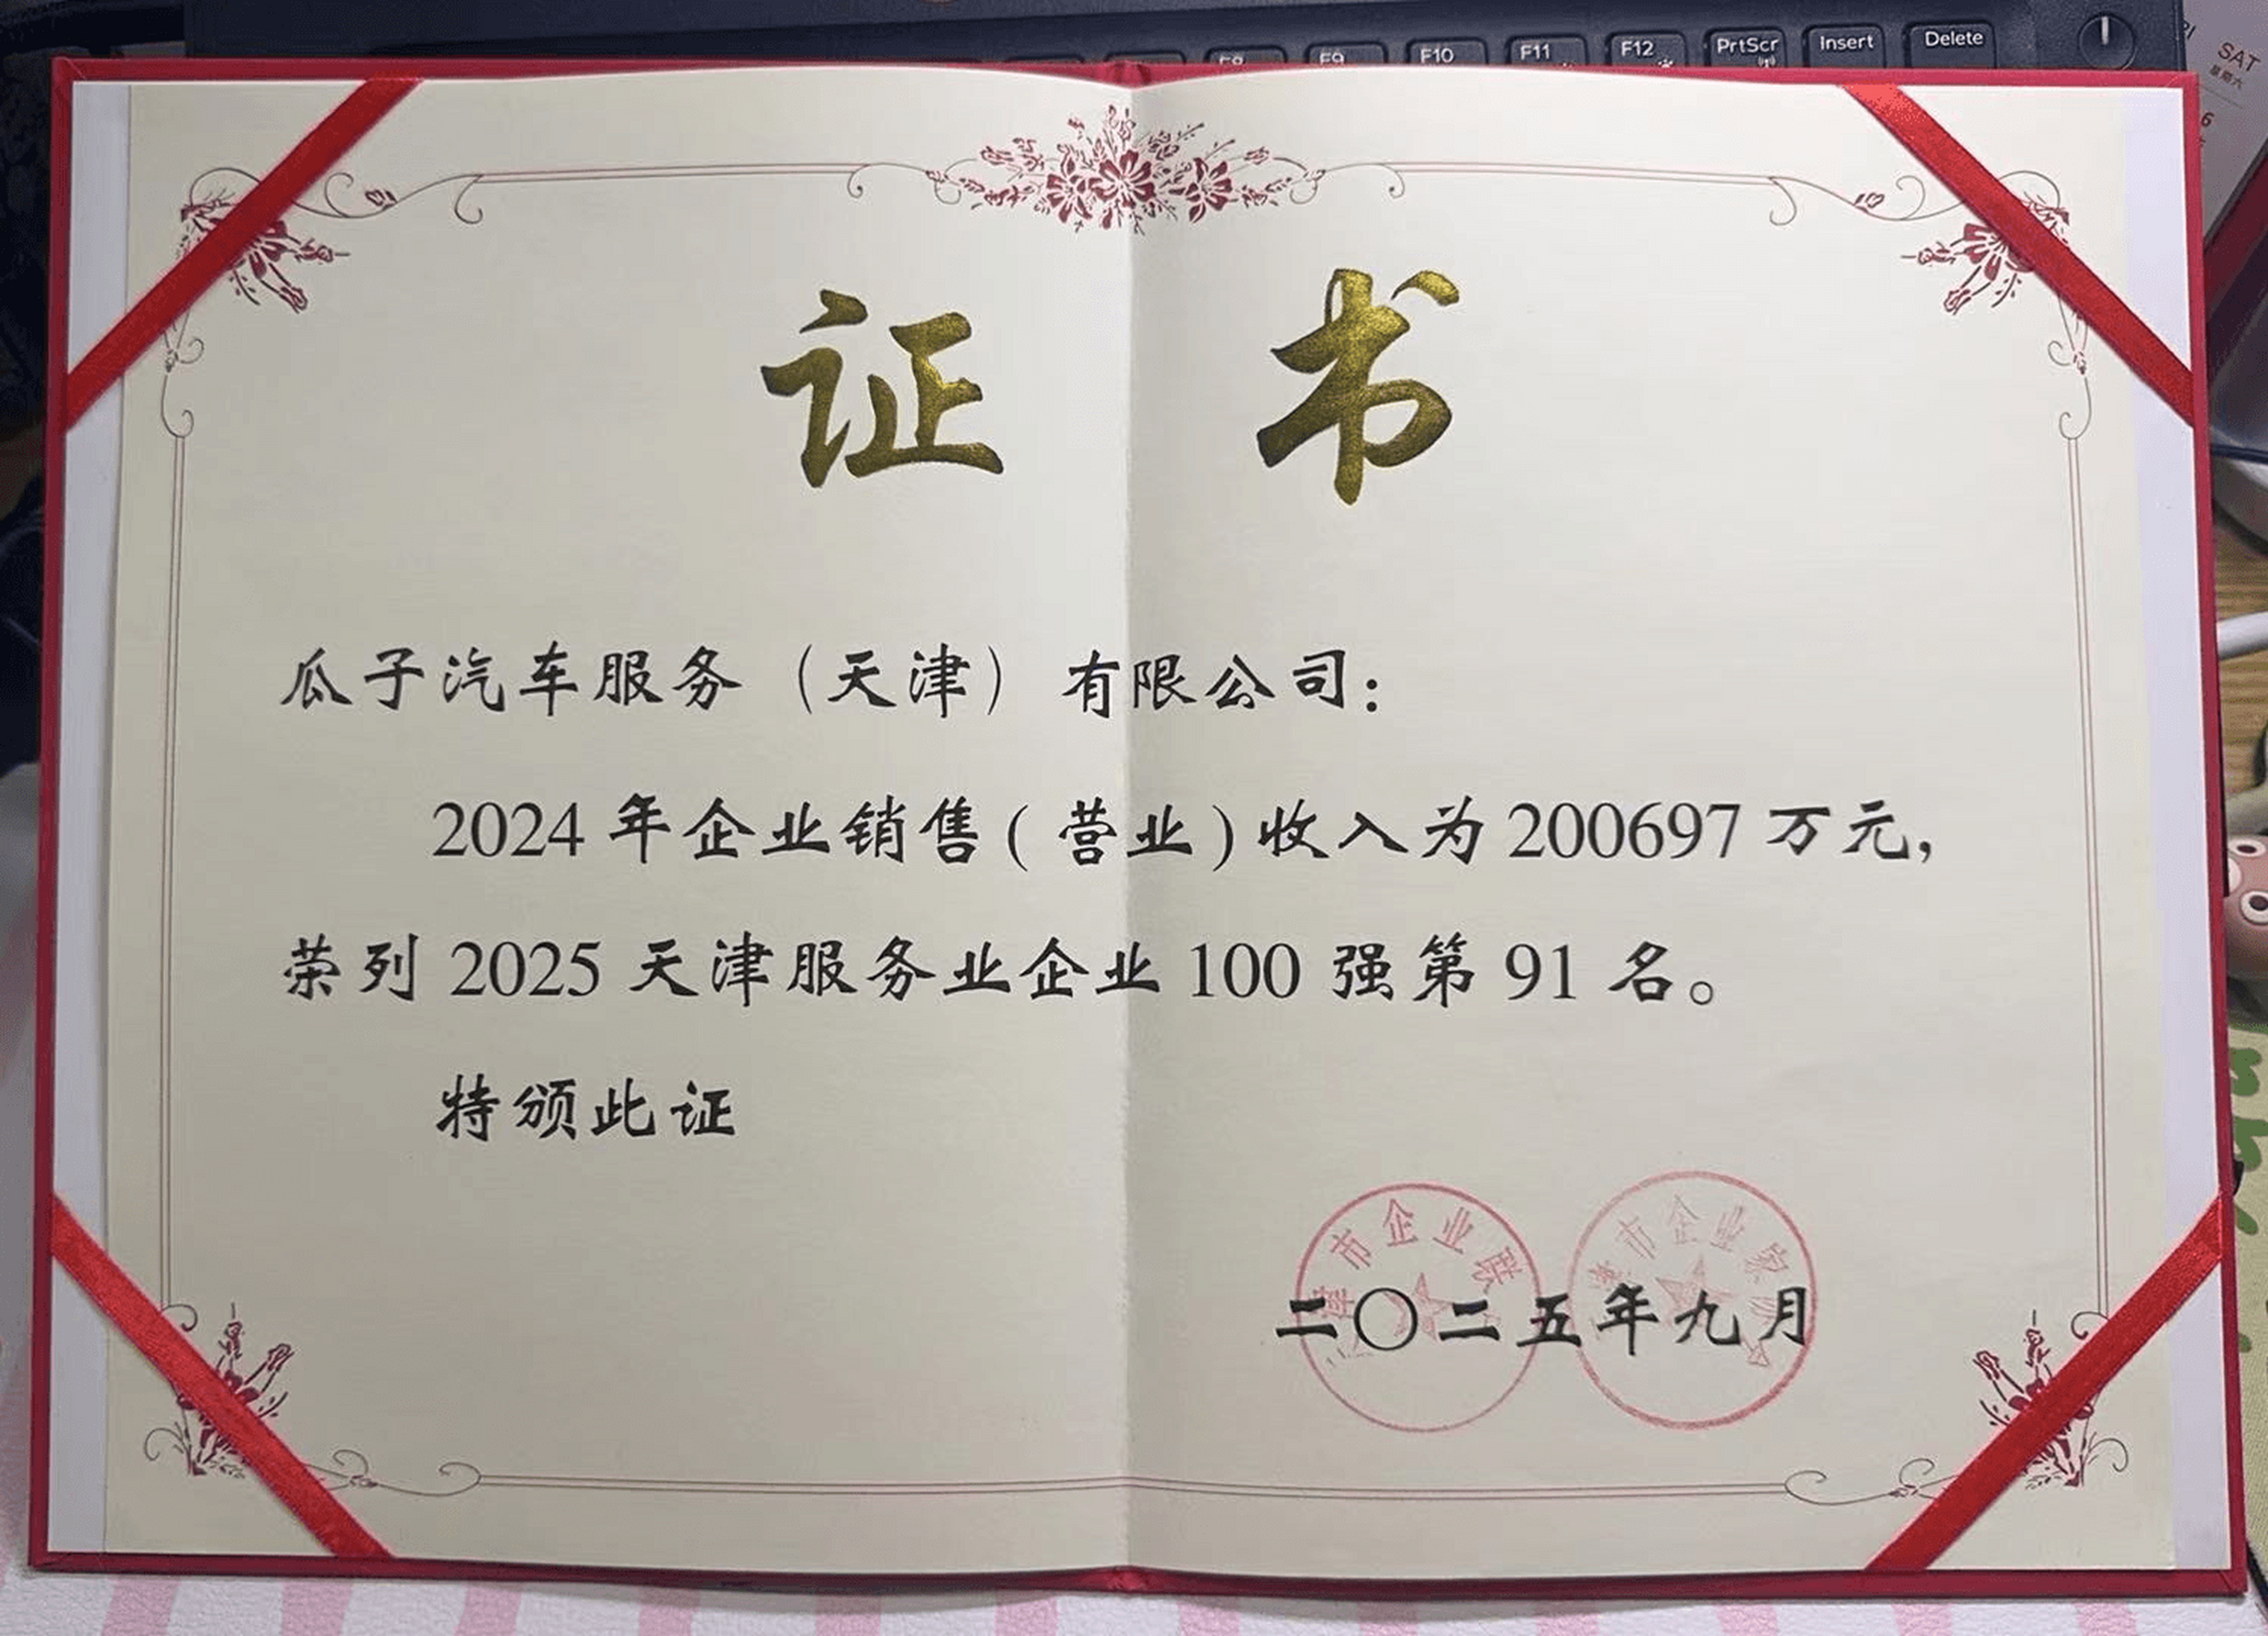 F8 F9 F10 F11 F12 PrtScr Insert Delete
SAT
星期六
6
证 书
瓜子汽车服务（天津）有限公司：
2024 年企业销售(营业)收入为 200697 万元，
荣列 2025 天津服务业企业 100 强第 91 名。
特颁此证
津市企业联
津市企业家
二〇二五年九月